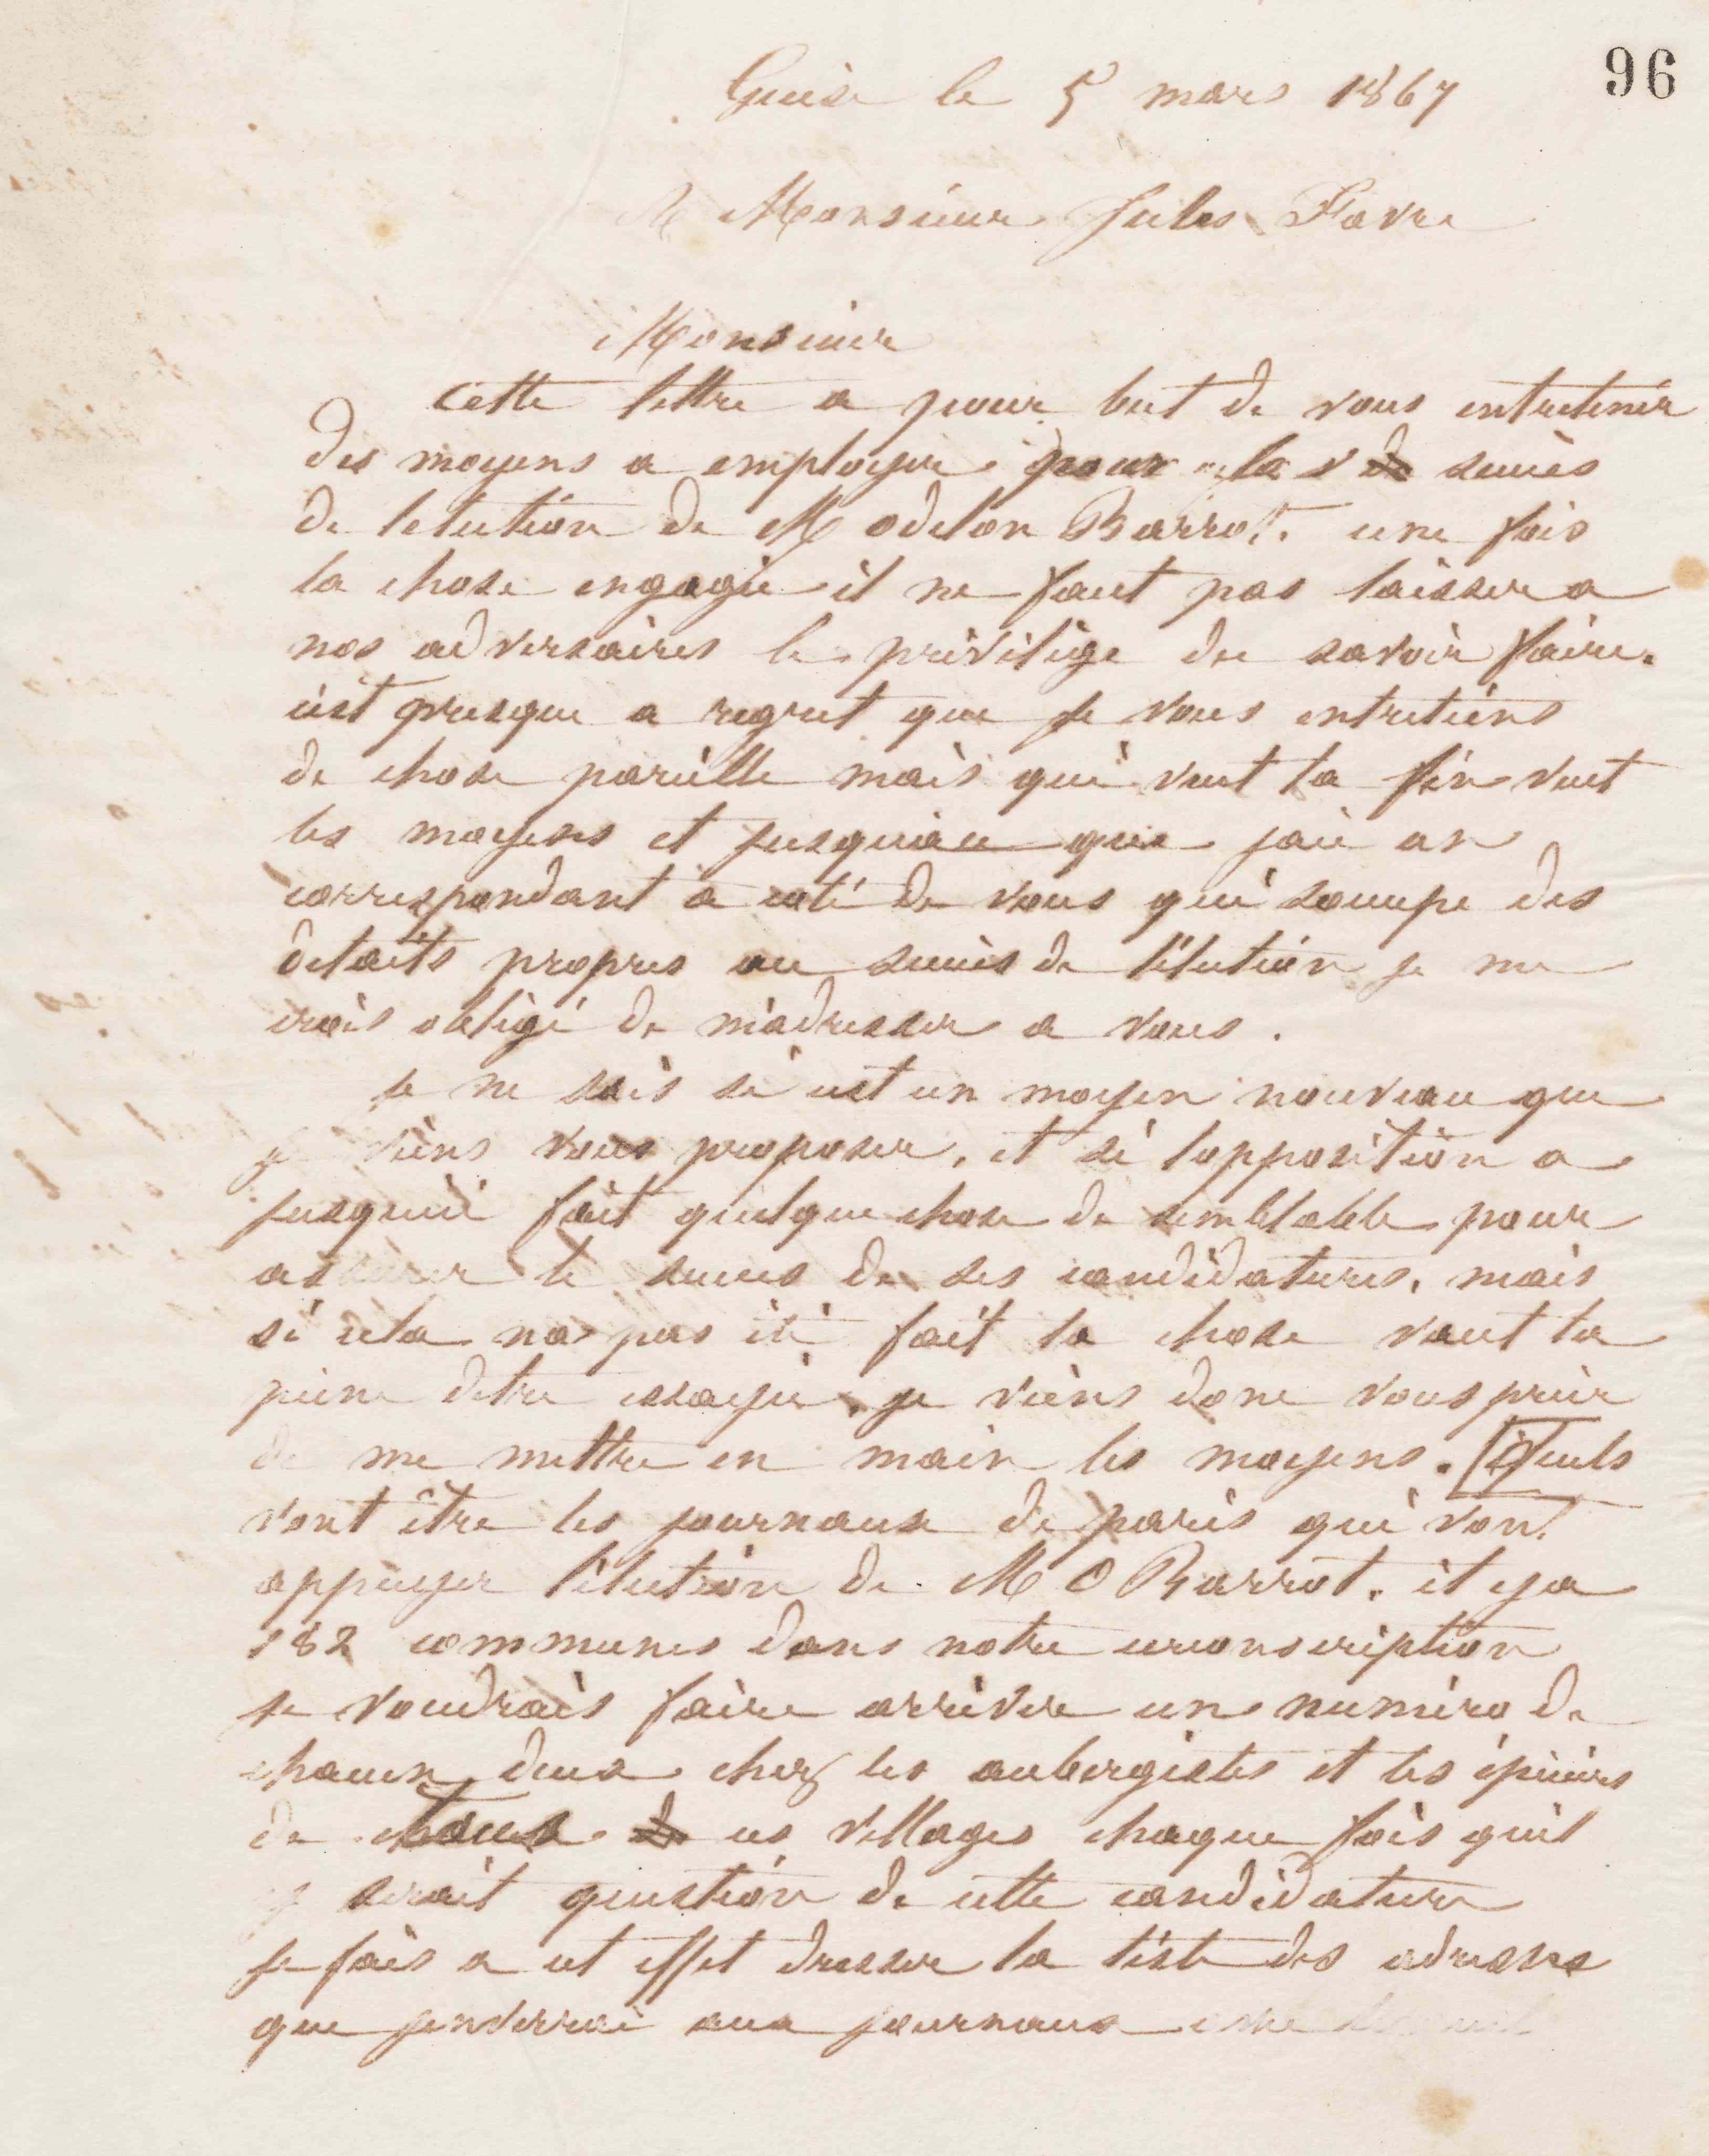 96
Guise le 5 mars 1867
A Monsieur Jules Favre
Monsieur
Cette lettre a pour but de vous entretenir
des moyens a employer pour le succès
de lelection de M Odelon Barrot. une fois
la chose engagée il ne faut pas laisser a
nos adversaires le privilège du savoir faire.
cest presque a regret que je vous entretiens
de chose pareille mais qui veut la fin veut
les moyens et jusquiace que jaie un
correspondant a coté de vous qui soccupe des
details propres au succès de l'élection je me
crois obligé de m'adresser a vous.
je ne sais si cest un moyen nouveau que
je viens vous proposer, et si lopposition a
jusquici fait quelque chose de semblable pour
assurer le succes de ses candidatures, mais
si cela na pas été fait la chose vaut la
peine detre essayée, je viens donc vous prier
de me mettre en main les moyens. Quels
vont être les journaux de paris qui vont
appuyer l'élection de M O Barrot. il y a
182 communes dans notre circonscription
je voudrais faire arriver un numéro de
chacun deux chez les aubergistes et les épiciers
de tous ces villages chaque fois quil
y serait question de cette candidature
je fais a cet effet dresser la liste des adresses
que jenverrai aux journaux